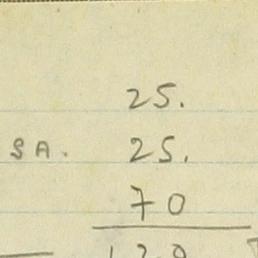 25.
SA. 25.
70
120